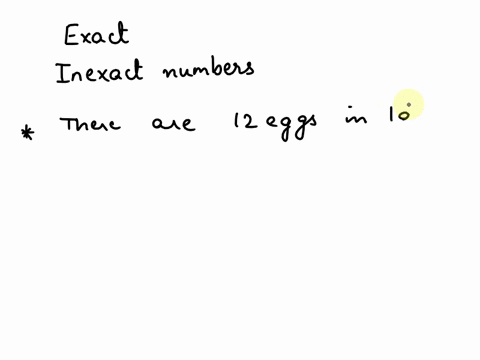 Exact
Inexact numbers
* There are 12 eggs in 10